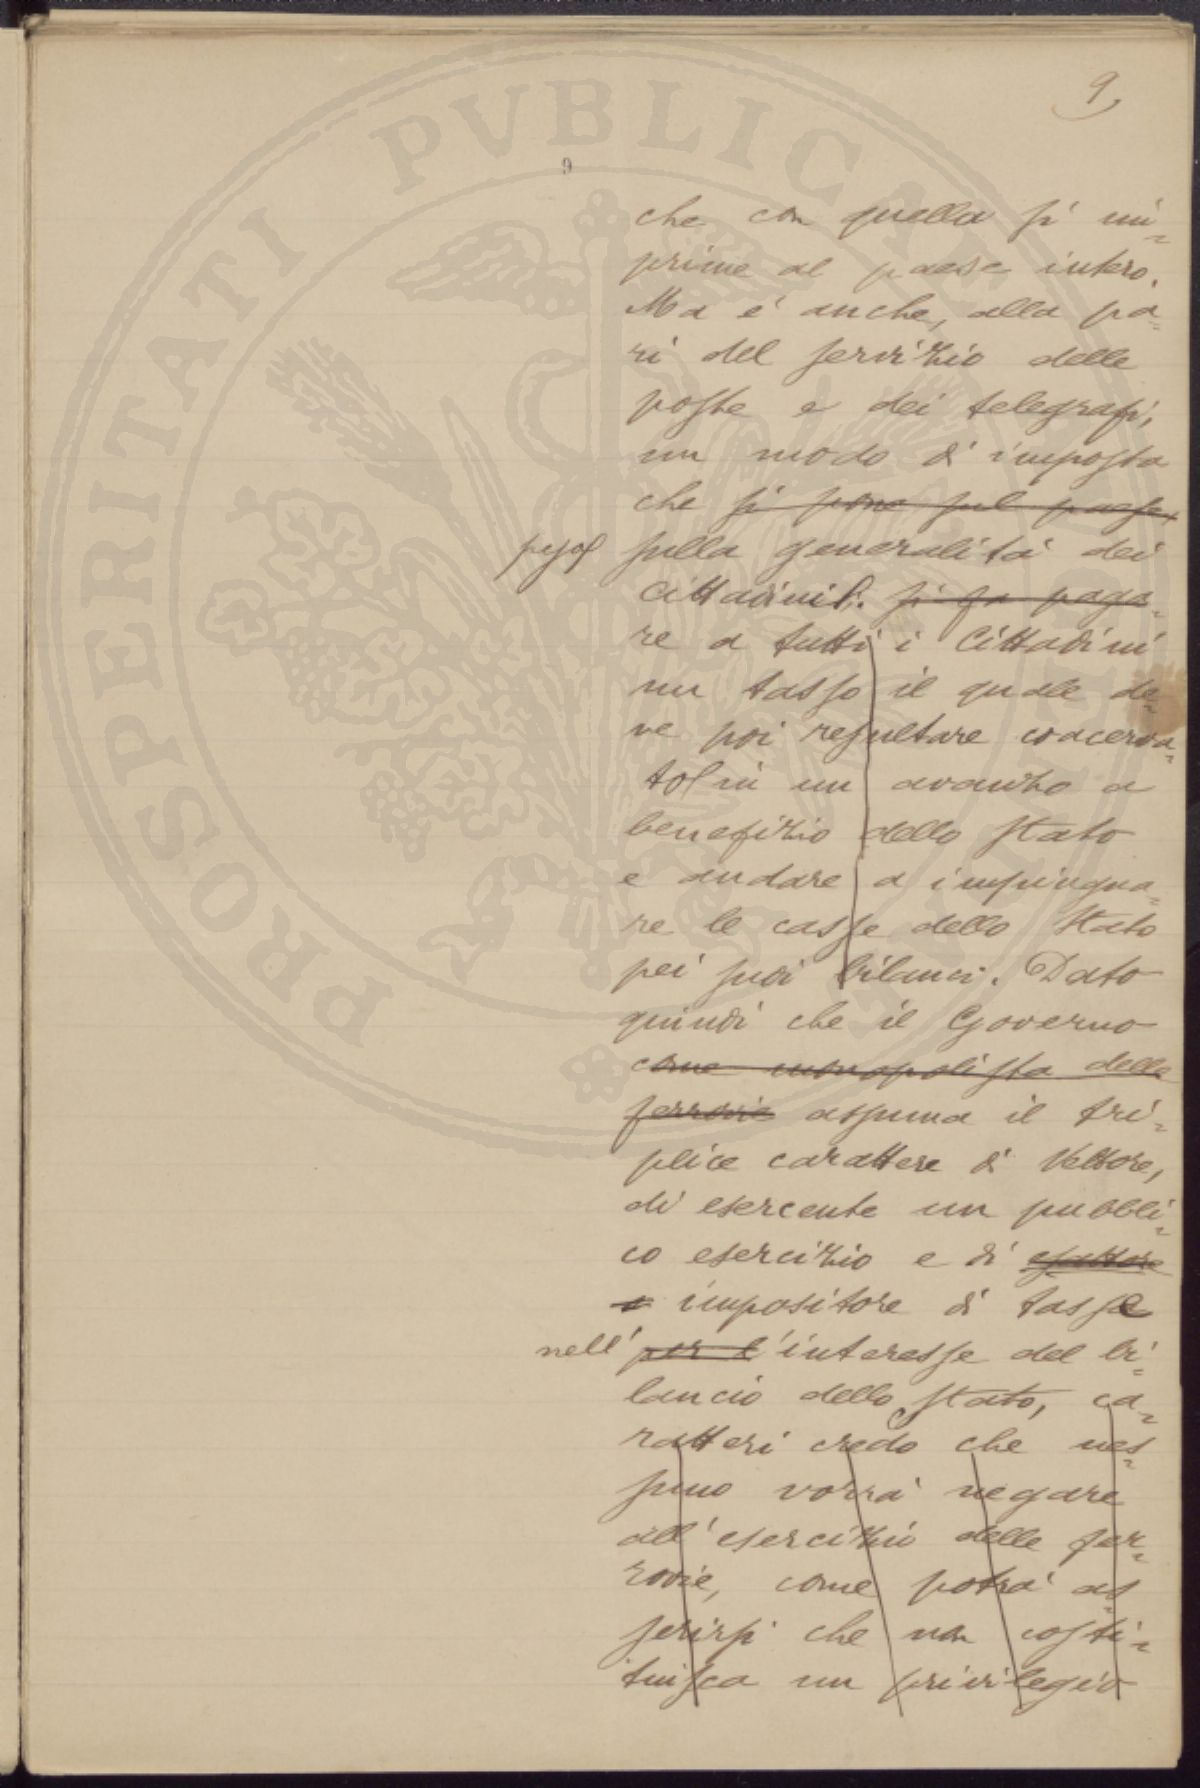 9
9
che con quella si im=
prime al paese intero.
Ma é anche, alla pa=
ri del servizio delle
poste e dei telegrafi,
un modo di imposta
che si pone sul paese,
sulla generalitá dei
cittadini. si fa paga=
re a tutti i Cittadini
un tasso il quale de=
ve poi resultare coacerva=
to in un avanzo a
benefizio dello Stato
e andare a impingua=
re le casse dello Stato
pei suoi bilanci. Dato
quindi che il Governo
come monopolista delle
ferrovie assuma il tri=
plice carattere di Vettore,
di esercente un pubbli=
co esercizio e di esattore
e impositore di tasse
nell' per l'interesse del bi=
lancio dello Stato, ca=
ratteri credo che nes=
suno vorrá negare
all'esercizio delle fer=
rovie, come potrá as=
serirsi che non costi=
tuisca un privilegio
PROSPERITATI PVBLICAE